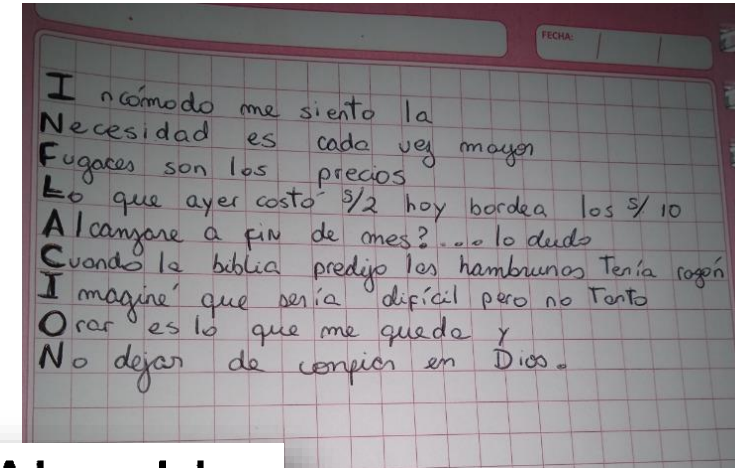 FECHA:
Incómodo me siento la
Necesidad es cada vez mayor
Fugaces son los precios
Lo que ayer costó s/2 hoy bordea los s/ 10
Alcanzare a fin de mes?... lo dudo
Cuando la biblia predijo las hambrunas Tenía razón
Imaginé que sería difícil pero no Tanto
Orar es lo que me queda y
No dejar de confiar en Dios.